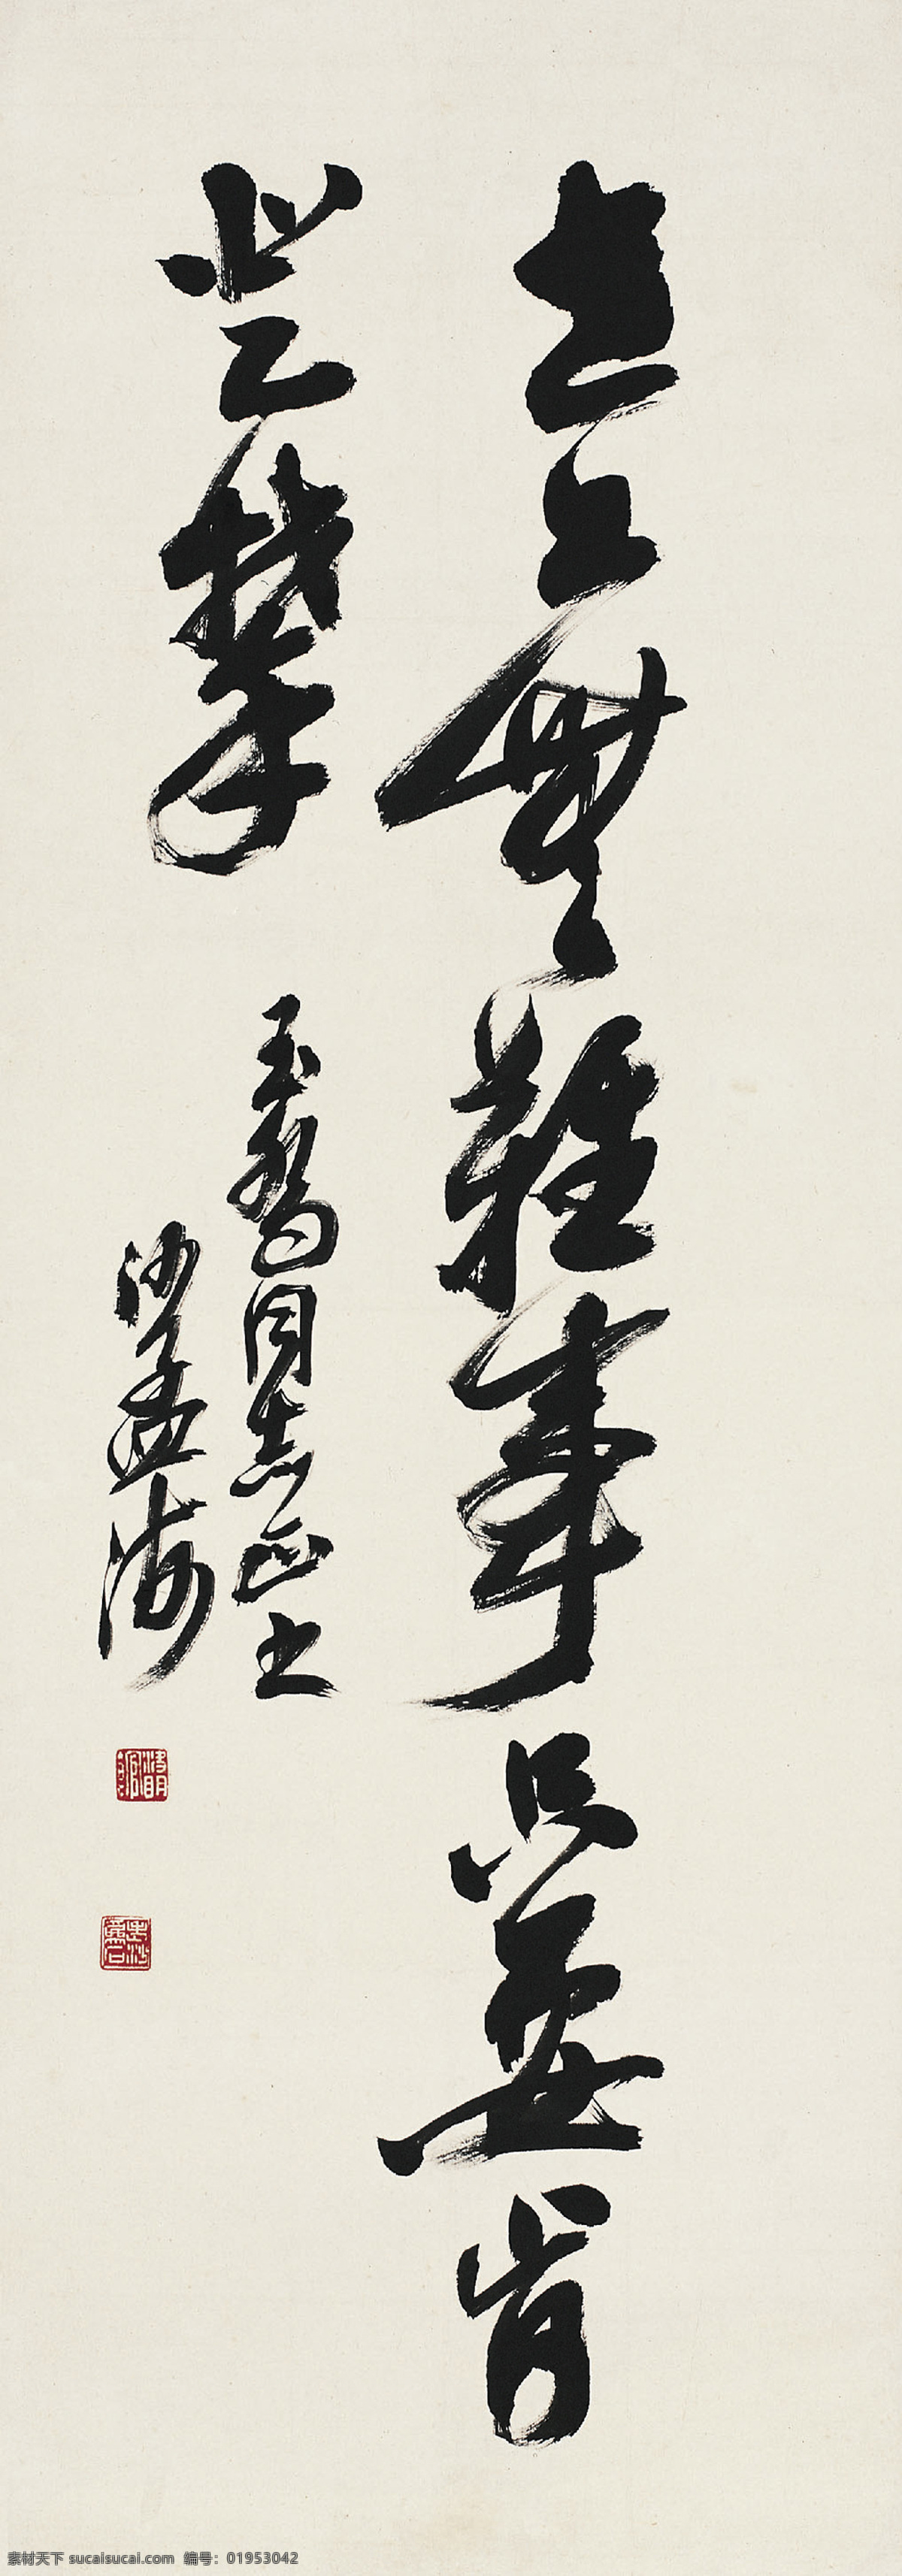 世上無難事只要肯
登攀
玉喬同志正之
沙孟海
素材天下 sucaisucai.com 编号：01953042